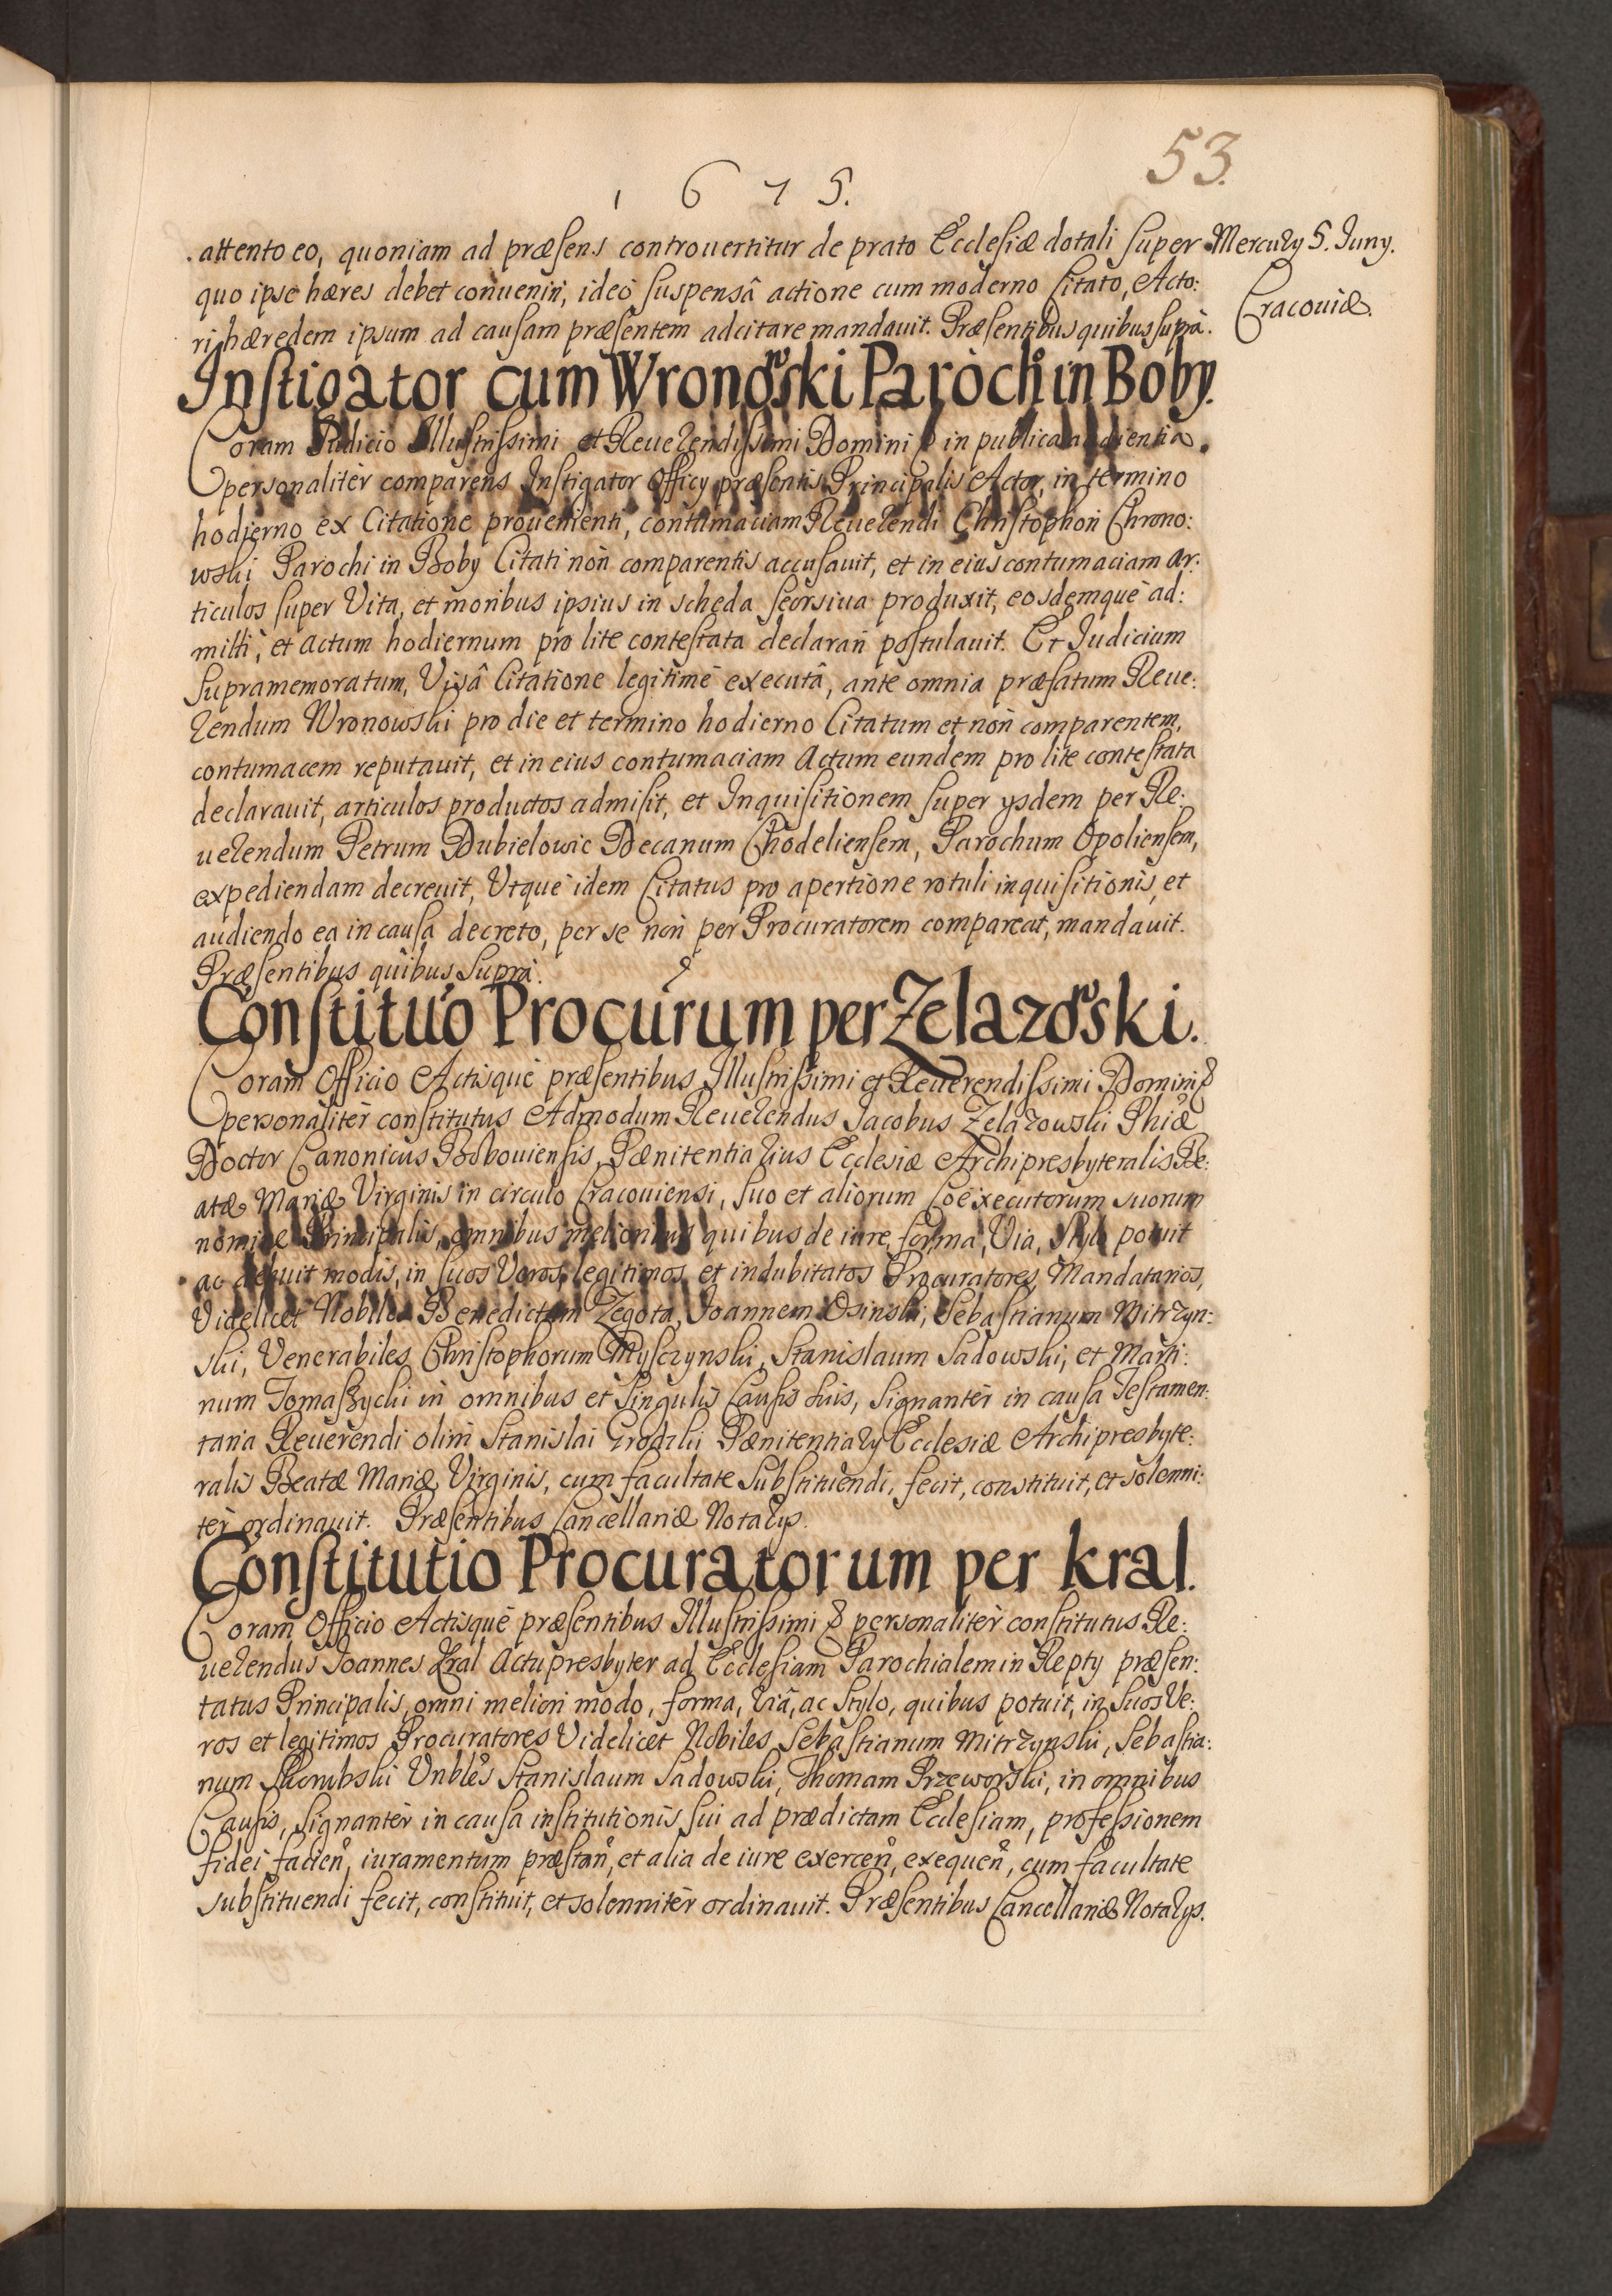 53.
1 6 7 5.
attento eo, quoniam ad præsens controuertitur de prato Ecclesiæ dotali super
Mercury 5. Juny.
Cracouiæ.
quo ipse hæres debet conuenin, ideò suspensâ actione cum moderno Citato, Acto:
ri hæredem ipsum ad causam præsentem adcitare mandauit. Præsentibus quibus suprà.
Instigator cum Wronowski Paroch in Boby.
Coram Judicio Illustrissimi et Reuerendissimi Domini & in publica audientia
personalitèr comparens Instigator Officy præsentis Principalis Actor, in termino
hodierno ex Citatione prouenienti, contumaciam Reuerendi Christophori Chrono:
wski Parochi in Boby Citati non comparentis accusauit, et in eius contumaciam ar:
ticulos super Vita, et moribus ipsius in scheda seorsiua produxit, eosdemquè ad:
mitti, et actum hodiernum pro lite contestata declarari postulauit. Et Judicium
supramemoratum, Visâ Citatione legitimè executâ, ante omnia præfatum Reue:
rendum Wronowski pro die et termino hodierno Citatum et non comparentem,
contumacem reputauit, et in eius contumaciam Actum eundem pro lite contestata
declarauit, articulos productos admisit, et Inquisitionem super ysdem per Re:
uerendum Petrum Dubielowic Decanum Chodeliensem, Parochum Opoliensem,
expediendam decreuit, Vtquè idem Citatus pro apertione rotuli inquisitionis, et
audiendo ea in causa decreto, per se non per Procuratorem compareat, mandauit.
Præsentibus quibus Suprà.
Constituo Procurum per Zelazowski.
Coram Officio Actisquè præsentibus Illustrissimi et Reuerendissimi Domini &
personalitèr constitutus Admodum Reuerendus Jacobus Zelazowski Phiæ
Doctor Canonicus Bobouiensis, Pænitentiarius Ecclesiæ Archipresbyteralis Be:
atæ Mariæ Virginis in circulo Cracouiensi, suo et aliorum Coëxecutorum suorum
nomine Principalis, omnibus melioribus quibus de iure, forma, Via, Stylo potuit
ac debuit modis, in suos Veros, legitimos et indubitatos Procuratores, Mandatarios,
Videlicèt Nobiles Benedictum Zegota, Joannem Osinski, Sebastianum Mitrzyn:
ski, Venerabiles Christophorum Myszczynski, Stanislaum Sadowski, et Marti:
num Tomaszycki in omnibus et singulis Causis suis, signantèr in causa Testamen:
taria Reuerendi olim Stanislai Grodzki Pænitentiary Ecclesiæ Archipresbyte:
ralis Beatæ Mariæ Virginis, cum facultate Substituendi, fecit, constituit, et solenni:
tèr ordinauit. Præsentibus Cancellariæ Notarys.
Constitutio Procuratorum per Kral.
Coram Officio Actisquè præsentibus Illustrissimi & personalitèr constitutus Re:
uerendus Joannes Kral Actu presbyter ad Ecclesiam Parochialem in Repty præsen:
tatus Principalis, omni meliori modo, forma, viâ, ac Stylo, quibus potuit, in suos Ve:
ros et legitimos Procuratores Videlicèt Nobiles Sebastianum Mitrzynski, Sebastia:
num Skrombski Vnbles Stanislaum Sadowski, Thomam Przeworski, in omnibus
Causis, signantèr in causa institutionis sui ad prædictam Ecclesiam, professionem
fidei facien, iuramentum præstan, et alia de iure exercen, exequen, cum facultate
substituendi fecit, constituit, et solennitèr ordinauit. Præsentibus Cancellariæ Notarys.